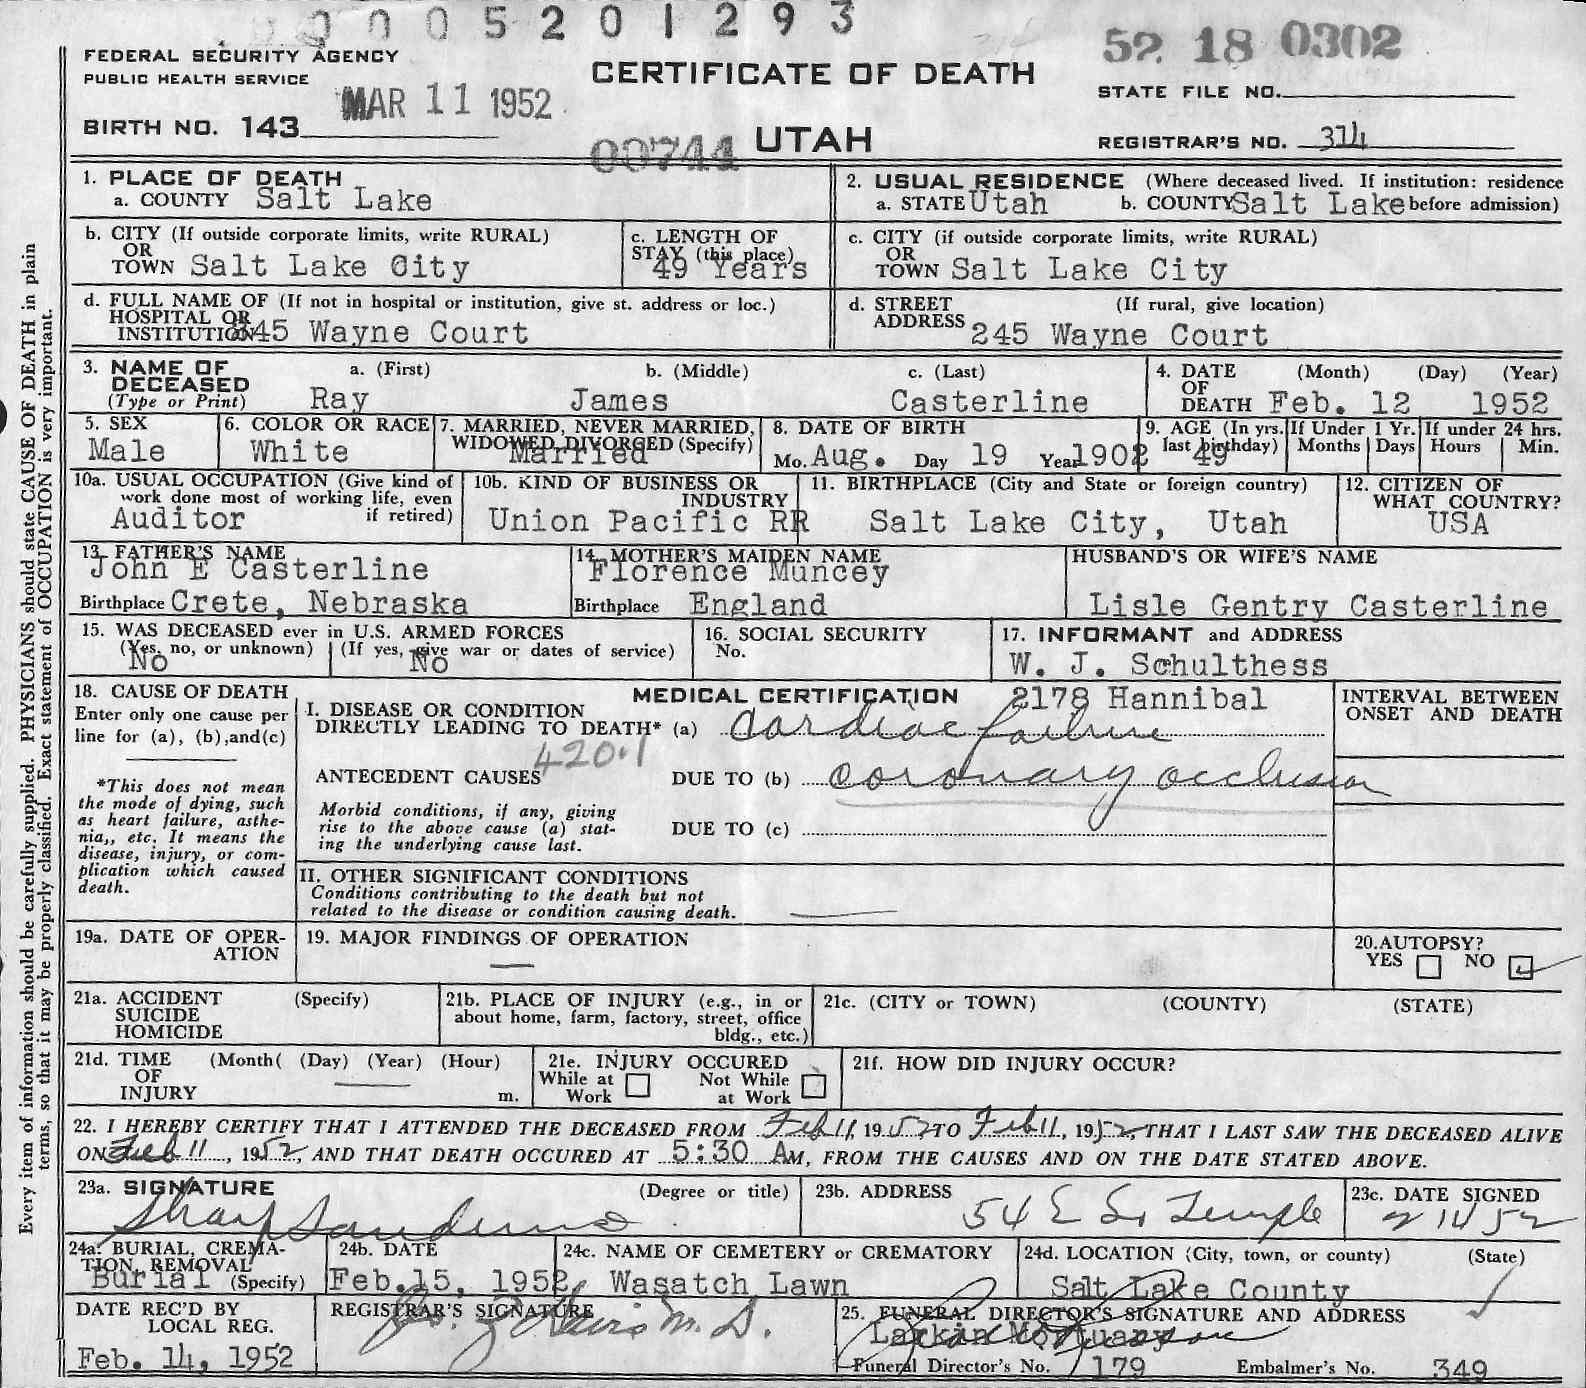 0005201293
FEDERAL SECURITY AGENCY
PUBLIC HEALTH SERVICE
MAR 11 1952
CERTIFICATE OF DEATH
52 18 0302
STATE FILE NO.
BIRTH NO. 143
00744 UTAH
REGISTRAR'S NO. 314
1. PLACE OF DEATH
a. COUNTY Salt Lake
2. USUAL RESIDENCE (Where deceased lived. If institution: residence
a. STATE Utah b. COUNTY Salt Lake before admission)
b. CITY (If outside corporate limits, write RURAL)
OR
TOWN Salt Lake City
c. LENGTH OF
STAY (this place)
49 Years
c. CITY (if outside corporate limits, write RURAL)
OR
TOWN Salt Lake City
d. FULL NAME OF (If not in hospital or institution, give st. address or loc.)
HOSPITAL OR
INSTITUTION 245 Wayne Court
d. STREET (If rural, give location)
ADDRESS 245 Wayne Court
3. NAME OF a. (First) b. (Middle) c. (Last)
DECEASED
(Type or Print) Ray James Casterline
4. DATE (Month) (Day) (Year)
OF
DEATH Feb. 12 1952
5. SEX
Male
6. COLOR OR RACE
White
7. MARRIED, NEVER MARRIED,
WIDOWED, DIVORCED (Specify)
Married
8. DATE OF BIRTH
Mo. Aug. Day 19 Year 1902
9. AGE (In yrs.
last birthday)
49
If Under 1 Yr.
Months Days
If under 24 hrs.
Hours Min.
10a. USUAL OCCUPATION (Give kind of
work done most of working life, even
if retired)
Auditor
10b. KIND OF BUSINESS OR
INDUSTRY
Union Pacific RR
11. BIRTHPLACE (City and State or foreign country)
Salt Lake City, Utah
12. CITIZEN OF
WHAT COUNTRY?
USA
13. FATHER'S NAME
John E Casterline
Birthplace Crete, Nebraska
14. MOTHER'S MAIDEN NAME
Florence Muncey
Birthplace England
HUSBAND'S OR WIFE'S NAME
Lisle Gentry Casterline
15. WAS DECEASED ever in U.S. ARMED FORCES
(Yes, no, or unknown) (If yes, give war or dates of service)
No No
16. SOCIAL SECURITY
No.
17. INFORMANT and ADDRESS
W. J. Schulthess
2178 Hannibal
18. CAUSE OF DEATH
Enter only one cause per
line for (a), (b),and(c)
*This does not mean
the mode of dying, such
as heart failure, asthe-
nia,, etc. It means the
disease, injury, or com-
plication which caused
death.
MEDICAL CERTIFICATION
I. DISEASE OR CONDITION
DIRECTLY LEADING TO DEATH* (a) Cardiac failure
420.1
ANTECEDENT CAUSES DUE TO (b) coronary occlusion
Morbid conditions, if any, giving
rise to the above cause (a) stat-
ing the underlying cause last.
DUE TO (c)
INTERVAL BETWEEN
ONSET AND DEATH
II. OTHER SIGNIFICANT CONDITIONS
Conditions contributing to the death but not
related to the disease or condition causing death.
19a. DATE OF OPER-
ATION
19. MAJOR FINDINGS OF OPERATION
20.AUTOPSY?
YES NO
21a. ACCIDENT (Specify)
SUICIDE
HOMICIDE
21b. PLACE OF INJURY (e.g., in or
about home, farm, factory, street, office
bldg., etc.)
21c. (CITY or TOWN) (COUNTY) (STATE)
21d. TIME (Month( (Day) (Year) (Hour)
OF
INJURY m.
21e. INJURY OCCURED
While at Not While
Work at Work
21f. HOW DID INJURY OCCUR?
22. I HEREBY CERTIFY THAT I ATTENDED THE DECEASED FROM Feb 11, 1952 TO Feb 11, 1952, THAT I LAST SAW THE DECEASED ALIVE
ON Feb 11, 1952, AND THAT DEATH OCCURED AT 5:30 AM, FROM THE CAUSES AND ON THE DATE STATED ABOVE.
23a. SIGNATURE (Degree or title)
Sharp Sanders
23b. ADDRESS
54 E So Temple
23c. DATE SIGNED
2 14 52
24a. BURIAL, CREMA-
TION, REMOVAL
Burial (Specify)
24b. DATE
Feb.15, 1952
24c. NAME OF CEMETERY or CREMATORY
Wasatch Lawn
24d. LOCATION (City, town, or county) (State)
Salt Lake County
DATE REC'D BY
LOCAL REG.
Feb. 14, 1952
REGISTRAR'S SIGNATURE
M.D.
25. FUNERAL DIRECTOR'S SIGNATURE AND ADDRESS
Larkin Mortuary
Funeral Director's No. 179 Embalmer's No. 349
Every item of information should be carefully supplied. PHYSICIANS should state CAUSE OF DEATH in plain
terms, so that it may be properly classified. Exact statement of OCCUPATION is very important.